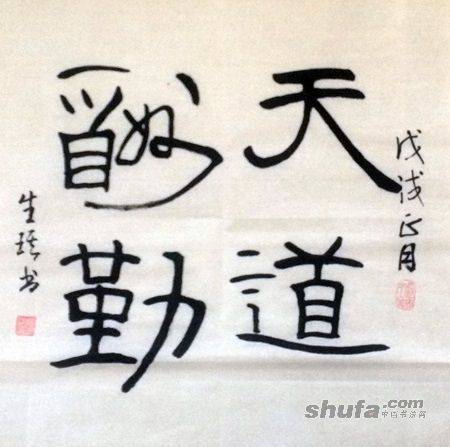 戊戌正月
天道
酬勤
生 书
shufa.com
中国书法网